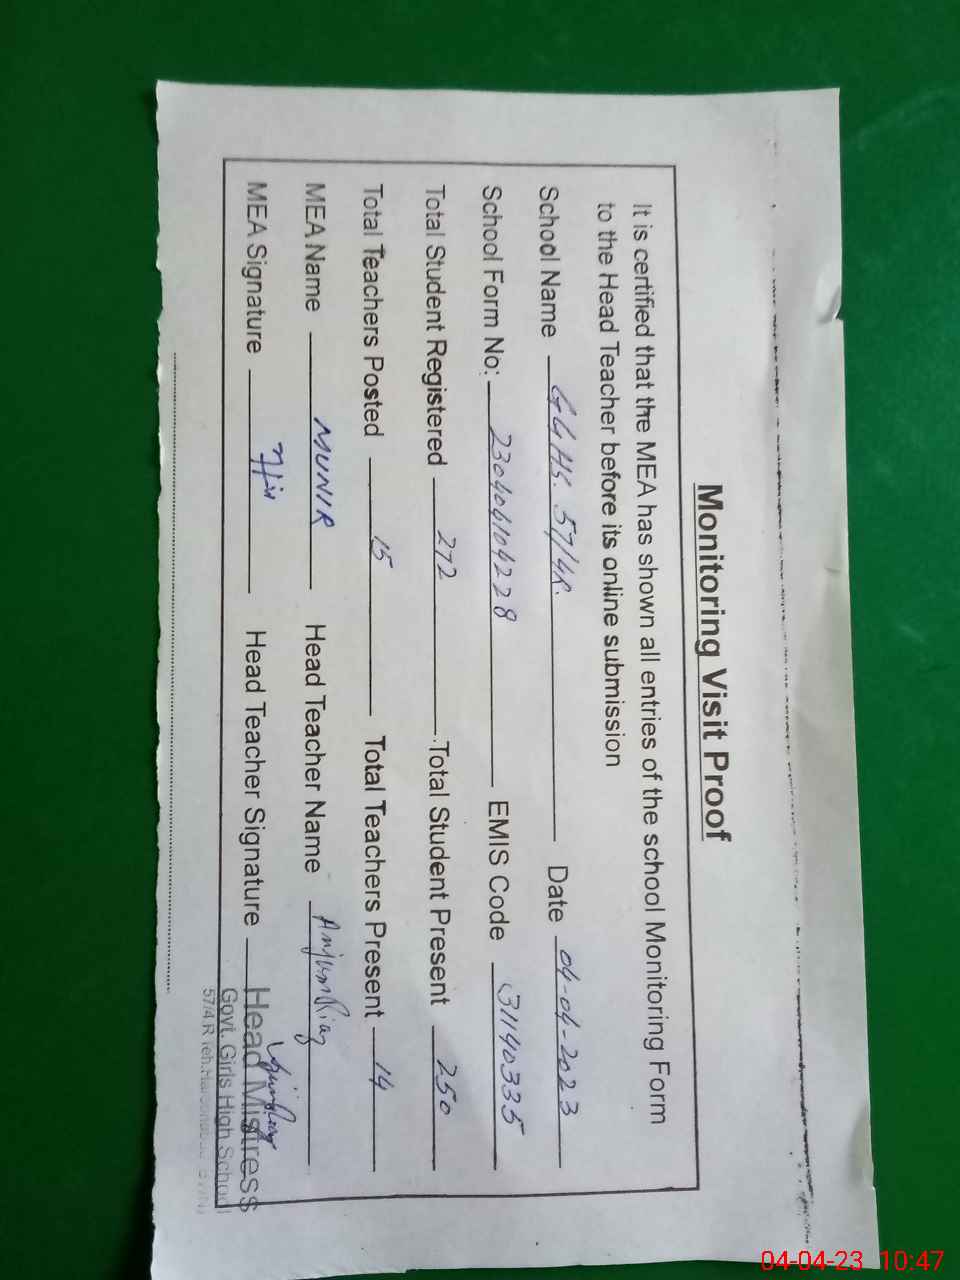 Monitoring Visit Proof
It is certified that the MEA has shown all entries of the school Monitoring Form
to the Head Teacher before its online submission
School Name GGHS. 57/4R. Date 04-04-2023
School Form No: 230406104228 EMIS Code 31140335
Total Student Registered 272 Total Student Present 250
Total Teachers Posted 15 Total Teachers Present 14
MEA Name MUNIR Head Teacher Name Anjum Riaz
MEA Signature Head Teacher Signature
Head Mistress
Govt. Girls High School
57/4.R Teh.
04-04-23 10:47